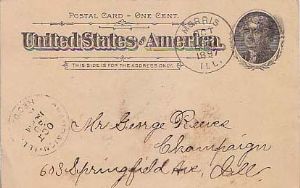 POSTAL CARD – ONE CENT.
United States of America.
THIS SIDE IS FOR THE ADDRESS ONLY.
MORRIS
OCT
1897
ILL.
Mr George Reeves
Champaign
603 Springfield Ave, Ill.